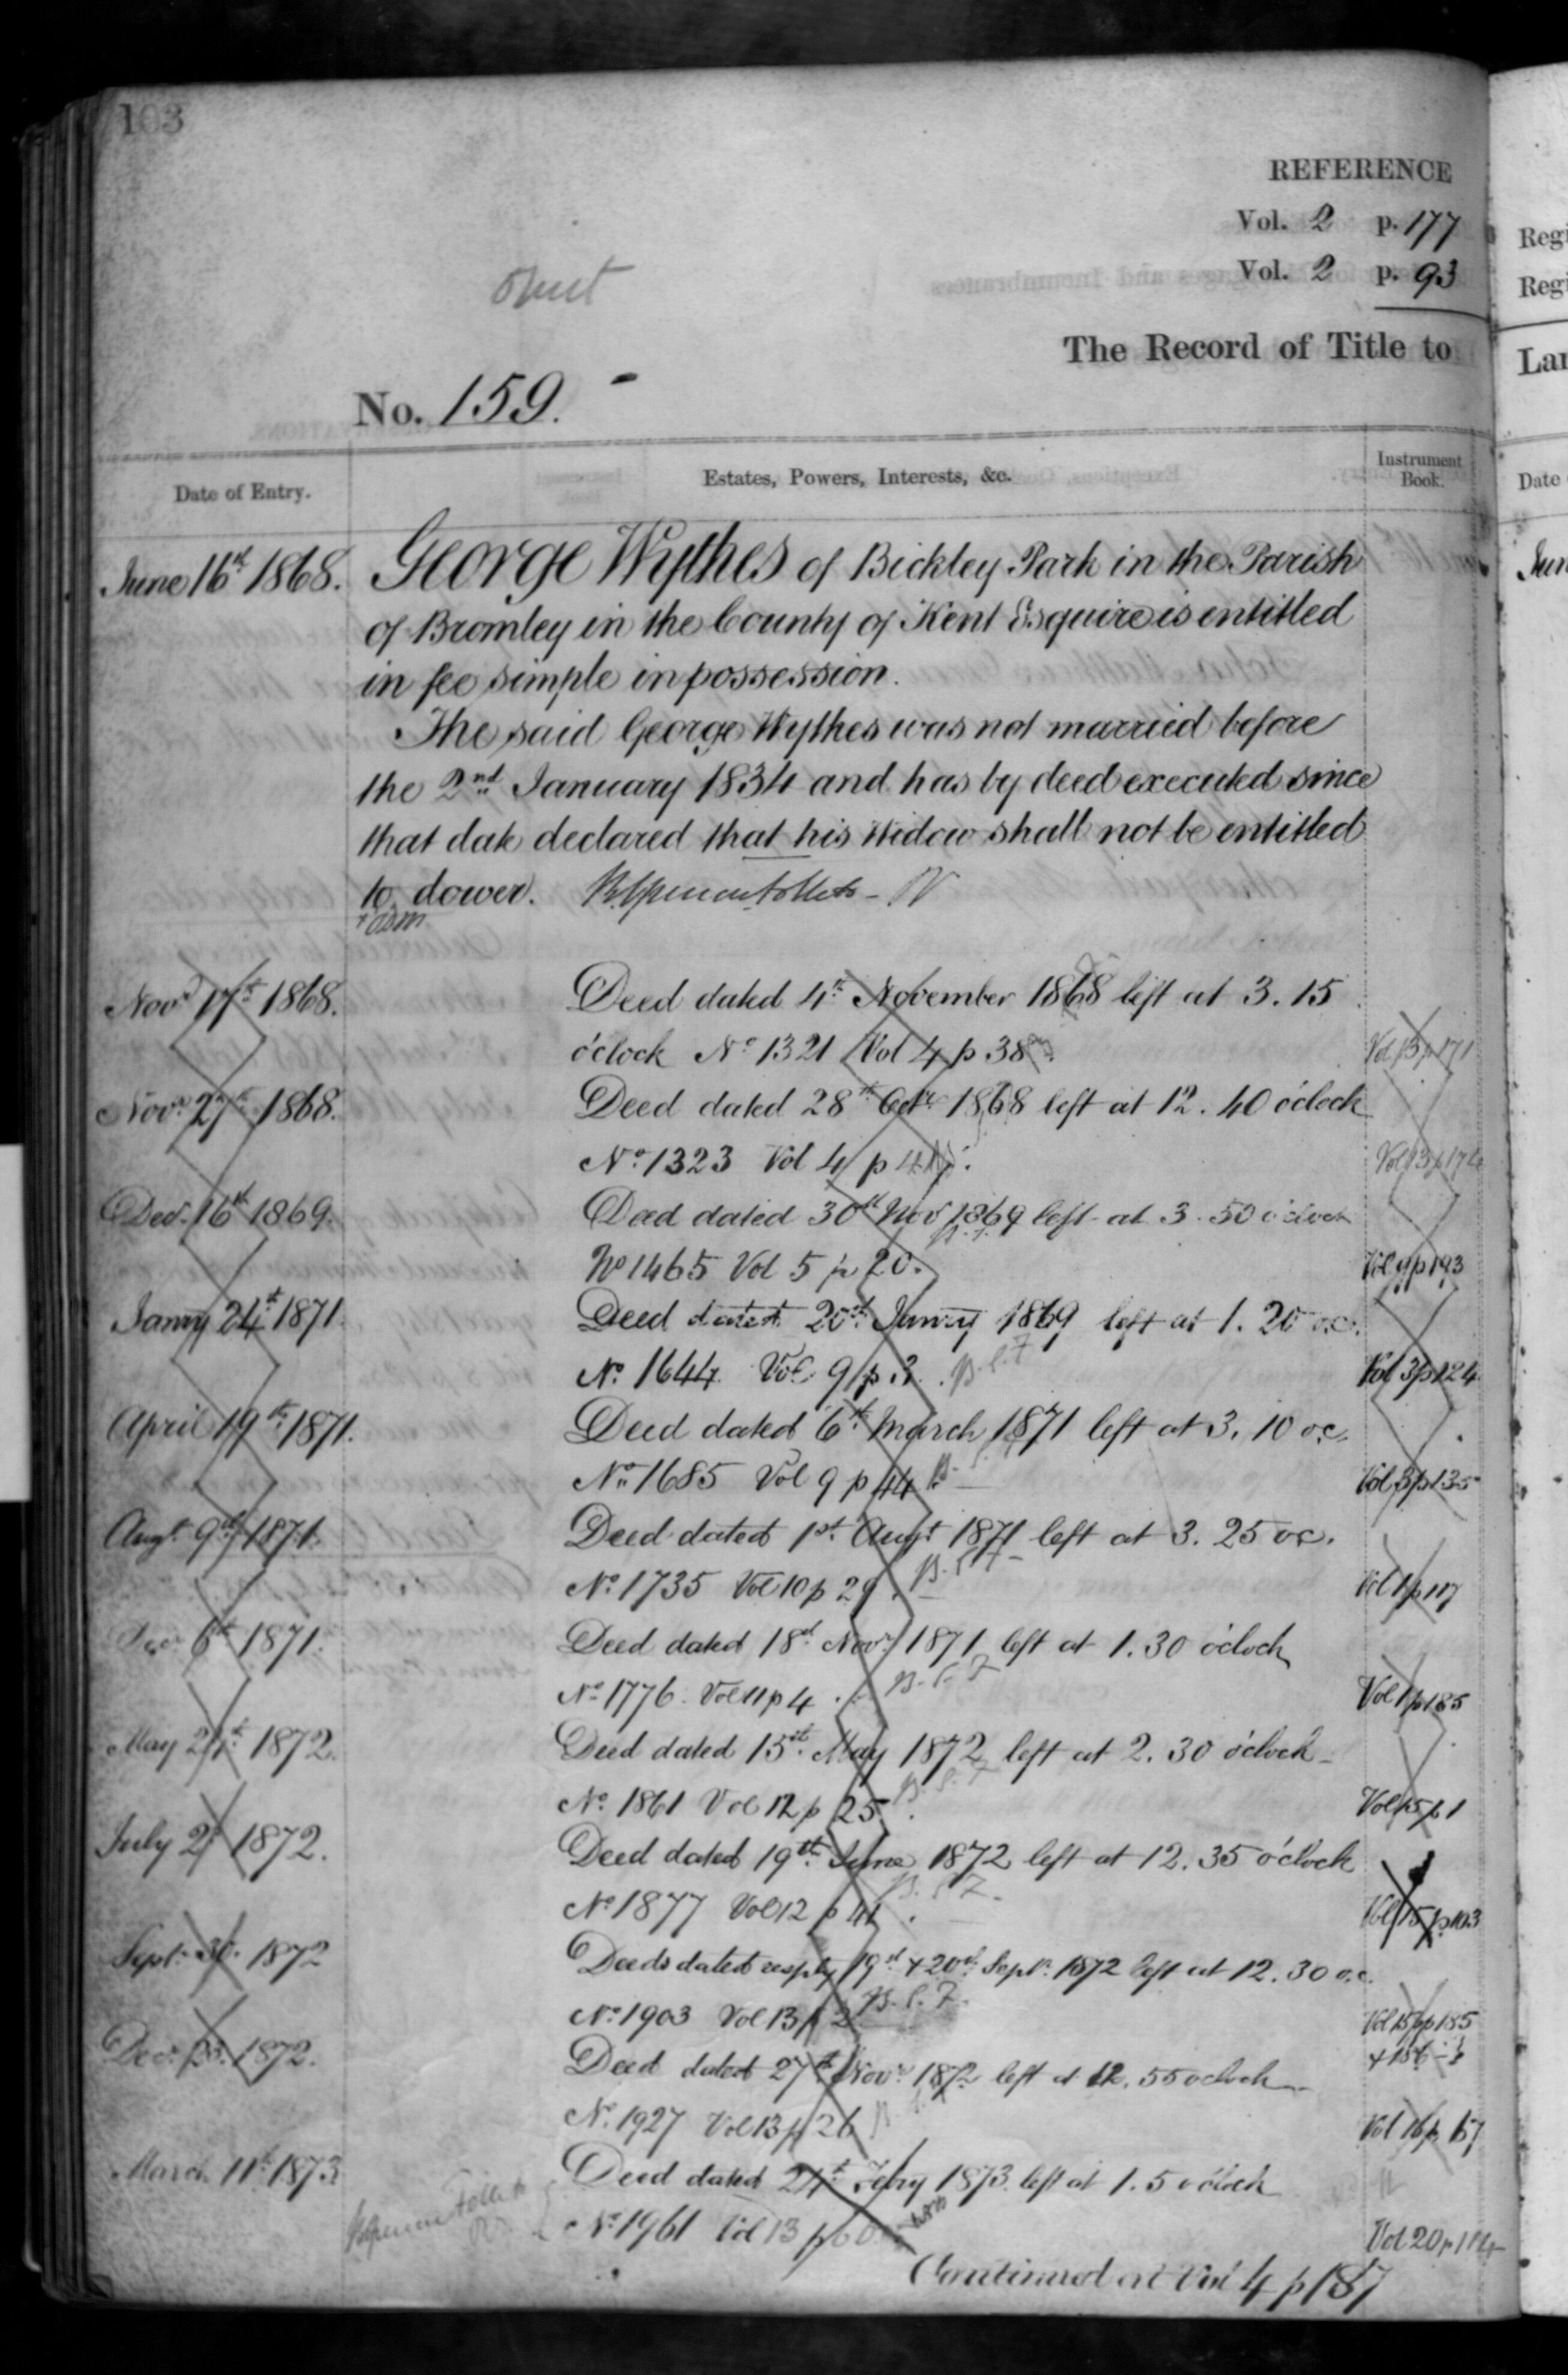 103
REFERENCE
Vol. 2 p. 177
Vol. 2 p. 93
The Record of Title to
No. 159.
Date of Entry. Estates, Powers, Interests, &c. Instrument Book.
June 16th 1868. George Wythes of Bickley Park in the Parish
of Bromley in the County of Kent Esquire is entitled
in fee simple in possession.
The said George Wythes was not married before
the 2nd January 1834 and has by deed executed since
that date declared that his Widow shall not be entitled
to dower.
Novr 17th 1868. Deed dated 4th November 1868 left at 3.15
o'clock No 1321 Vol 4 p 38 Vol 13 p 171
Novr 27th 1868. Deed dated 28th Octr 1868 left at 12.40 o'clock
No 1323 Vol 4 p Vol 13 p 174
Decr 16th 1869. Deed dated 30th Novr 1869 left at 3.50 o'clock
No 1465 Vol 5 p 20. Vol p 193
Janry 24th 1871. Deed dated 20th Janry 1869 left at 1.20 o.c.
No 1644 Vol 9 p 3. B.S.F Vol 3 p 124
April 19th 1871. Deed dated 6th March 1871 left at 3.10 o.c.
No 1685 Vol 9 p 44. Vol 3 p 135
Augt 9th 1871. Deed dated 1st Augt 1871 left at 3.25 o.c.
No 1735 Vol 10 p 29. B.S.F Vol 1 p 117
Decr 6th 1871. Deed dated 18th Novr 1871 left at 1.30 o'clock
No 1776. Vol 11 p 4. B.S.F Vol 1 p 185
May 1872. Deed dated 15th May 1872 left at 2.30 o'clock
No 1861 Vol 12 p 25. B.S.F Vol 15 p 1
July 2 1872. Deed dated 19th June 1872 left at 12.35 o'clock
No 1877 Vol 12 p 41. B.S.F. Vol 15 p 103
Sept. 30. 1872 Deeds dated resply 19th & 20th Septr 1872 left at 12.30 o.c.
No 1903 Vol 13 p 2 B.S.F. Vol 15 pp 185
& 186
Decr 1872. Deed dated 27th Novr 1872 left at 12.55 o'clock
No 1927 Vol 13 p 26 Vol 16 p 157
March 11th 1873 Deed dated 24th Febry 1873 left at 1.5 o'clock
No 1961 Vol 13 p 60 Vol 20 p
Continued at Vol 4 p 187
Regi
Regi
Lan
Date
Jun